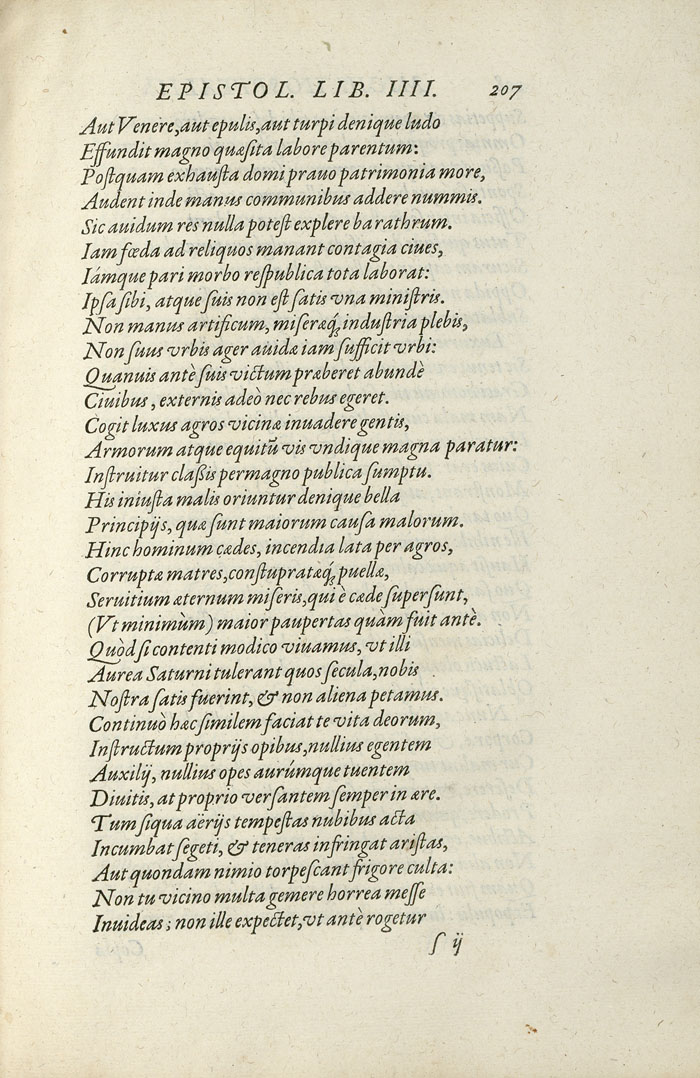 EPISTOL. LIB. IIII. 207
Aut Venere, aut epulis, aut turpi denique ludo
Effundit magno quæsita labore parentum:
Poſtquam exhauſta domi prauo patrimonia more,
Audent inde manus communibus addere nummis.
Sic auidum res nulla poteſt explere barathrum.
Iam fœda ad reliquos manant contagia ciues,
Iámque pari morbo reſpublica tota laborat:
Ipſa ſibi, atque ſuis non eſt ſatis vna miniſtris.
Non manus artificum, miſeræq́; induſtria plebis,
Non ſuus vrbis ager auidæ iam ſufficit vrbi:
Quanuis antè ſuis victum præberet abundè
Ciuibus, externis adeò nec rebus egeret.
Cogit luxus agros vicinæ inuadere gentis,
Armorum atque equitũ vis vndique magna paratur:
Inſtruitur claßis permagno publica ſumptu.
His iniuſta malis oriuntur denique bella
Principijs, quæ ſunt maiorum cauſa malorum.
Hinc hominum cædes, incendia lata per agros,
Corruptæ matres, conſtuprataæq́; puellæ,
Seruitium æternum miſeris, qui è cæde ſuperſunt,
(Vt minimùm) maior paupertas quàm fuit antè.
Quòd ſi contenti modico viuamus, vt illi
Aurea Saturni tulerant quos ſecula, nobis
Noſtra ſatis fuerint, & non aliena petamus.
Continuò hæc ſimilem faciat te vita deorum,
Inſtructum proprijs opibus, nullius egentem
Auxilij, nullius opes aurúmque tuentem
Diuitis, at proprio verſantem ſemper in ære.
Tum ſiqua aërijs tempeſtas nubibus acta
Incumbat ſegeti, & teneras infringat ariſtas,
Aut quondam nimio torpeſcant frigore culta:
Non tu vicino multa gemere horrea meſſe
Inuideas; non ille expectet, vt antè rogetur
ſ ij